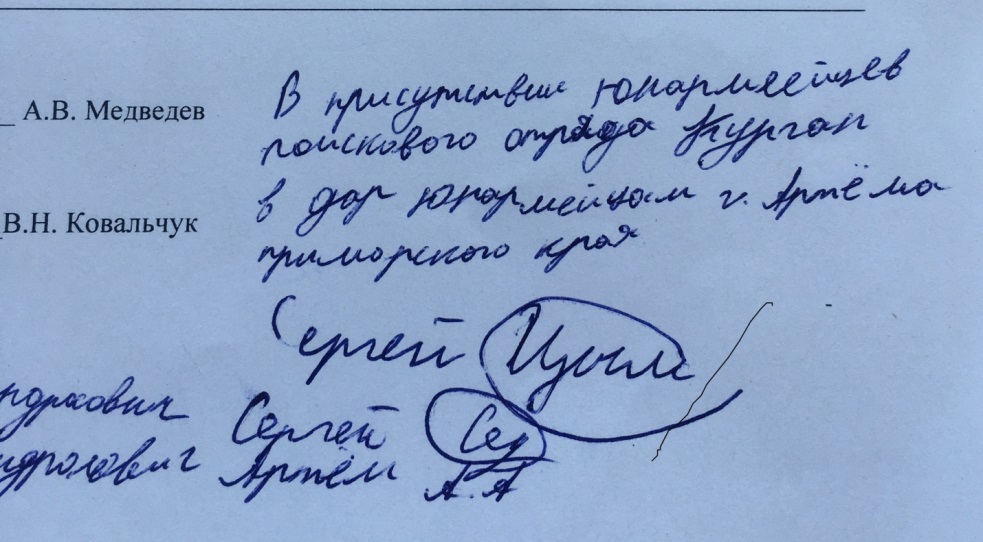 А.В. Медведев
В.Н. Ковальчук
В присутствии юнармейцев
поискового отряда Курган
в дар юнармейцам г. Артёма
приморского края
Сергей
Сергей Сед
Артём А.А